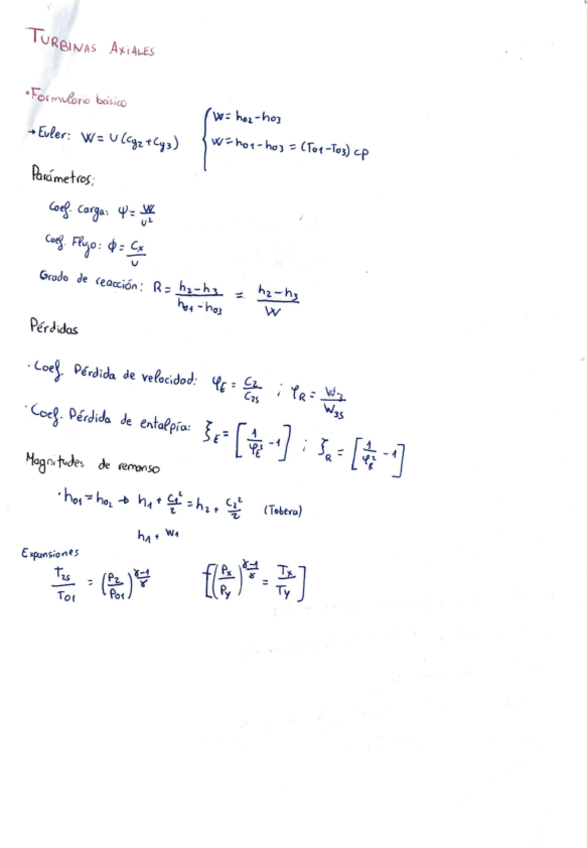 TURBINAS AXIALES
• Formulario básico
→ Euler: W = U (Cy2 + Cy3) { W = h02 - h03
W = h01 - h03 = (T01 - T03) cp
Parámetros:
Coef. Carga: Ψ = W/U²
Coef. Flujo: Φ = Cx/U
Grado de reacción: R = (h2 - h3)/(h01 - h03) = (h2 - h3)/W
Pérdidas
· Coef. Pérdida de velocidad: φE = C2/C2s ; φR = W3/W3s
· Coef. Pérdida de entalpía: ξE = [1/φE² - 1] ; ξR = [1/φR² - 1]
Magnitudes de remanso
· h01 = h02 → h1 + C1²/2 = h2 + C2²/2 (Tobera)
h1 + W1
Expansiones
T2s/T01 = (P2/P01)^((γ-1)/γ) [(Px/Py)^((γ-1)/γ) = Tx/Ty]